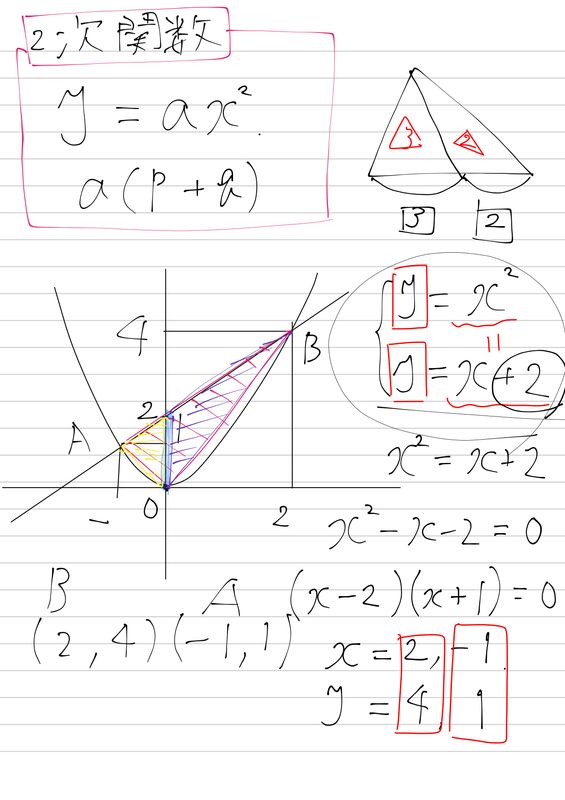 2次関数
y = ax².
a(p+q)
3
2
3
2
y = x²
=
y = x+2
x² = x+2
x²-x-2 = 0
(x-2)(x+1) = 0
x = 2, -1.
y = 4 1
4
B
2
1
A
-
0
2
B A
(2, 4) (-1, 1)